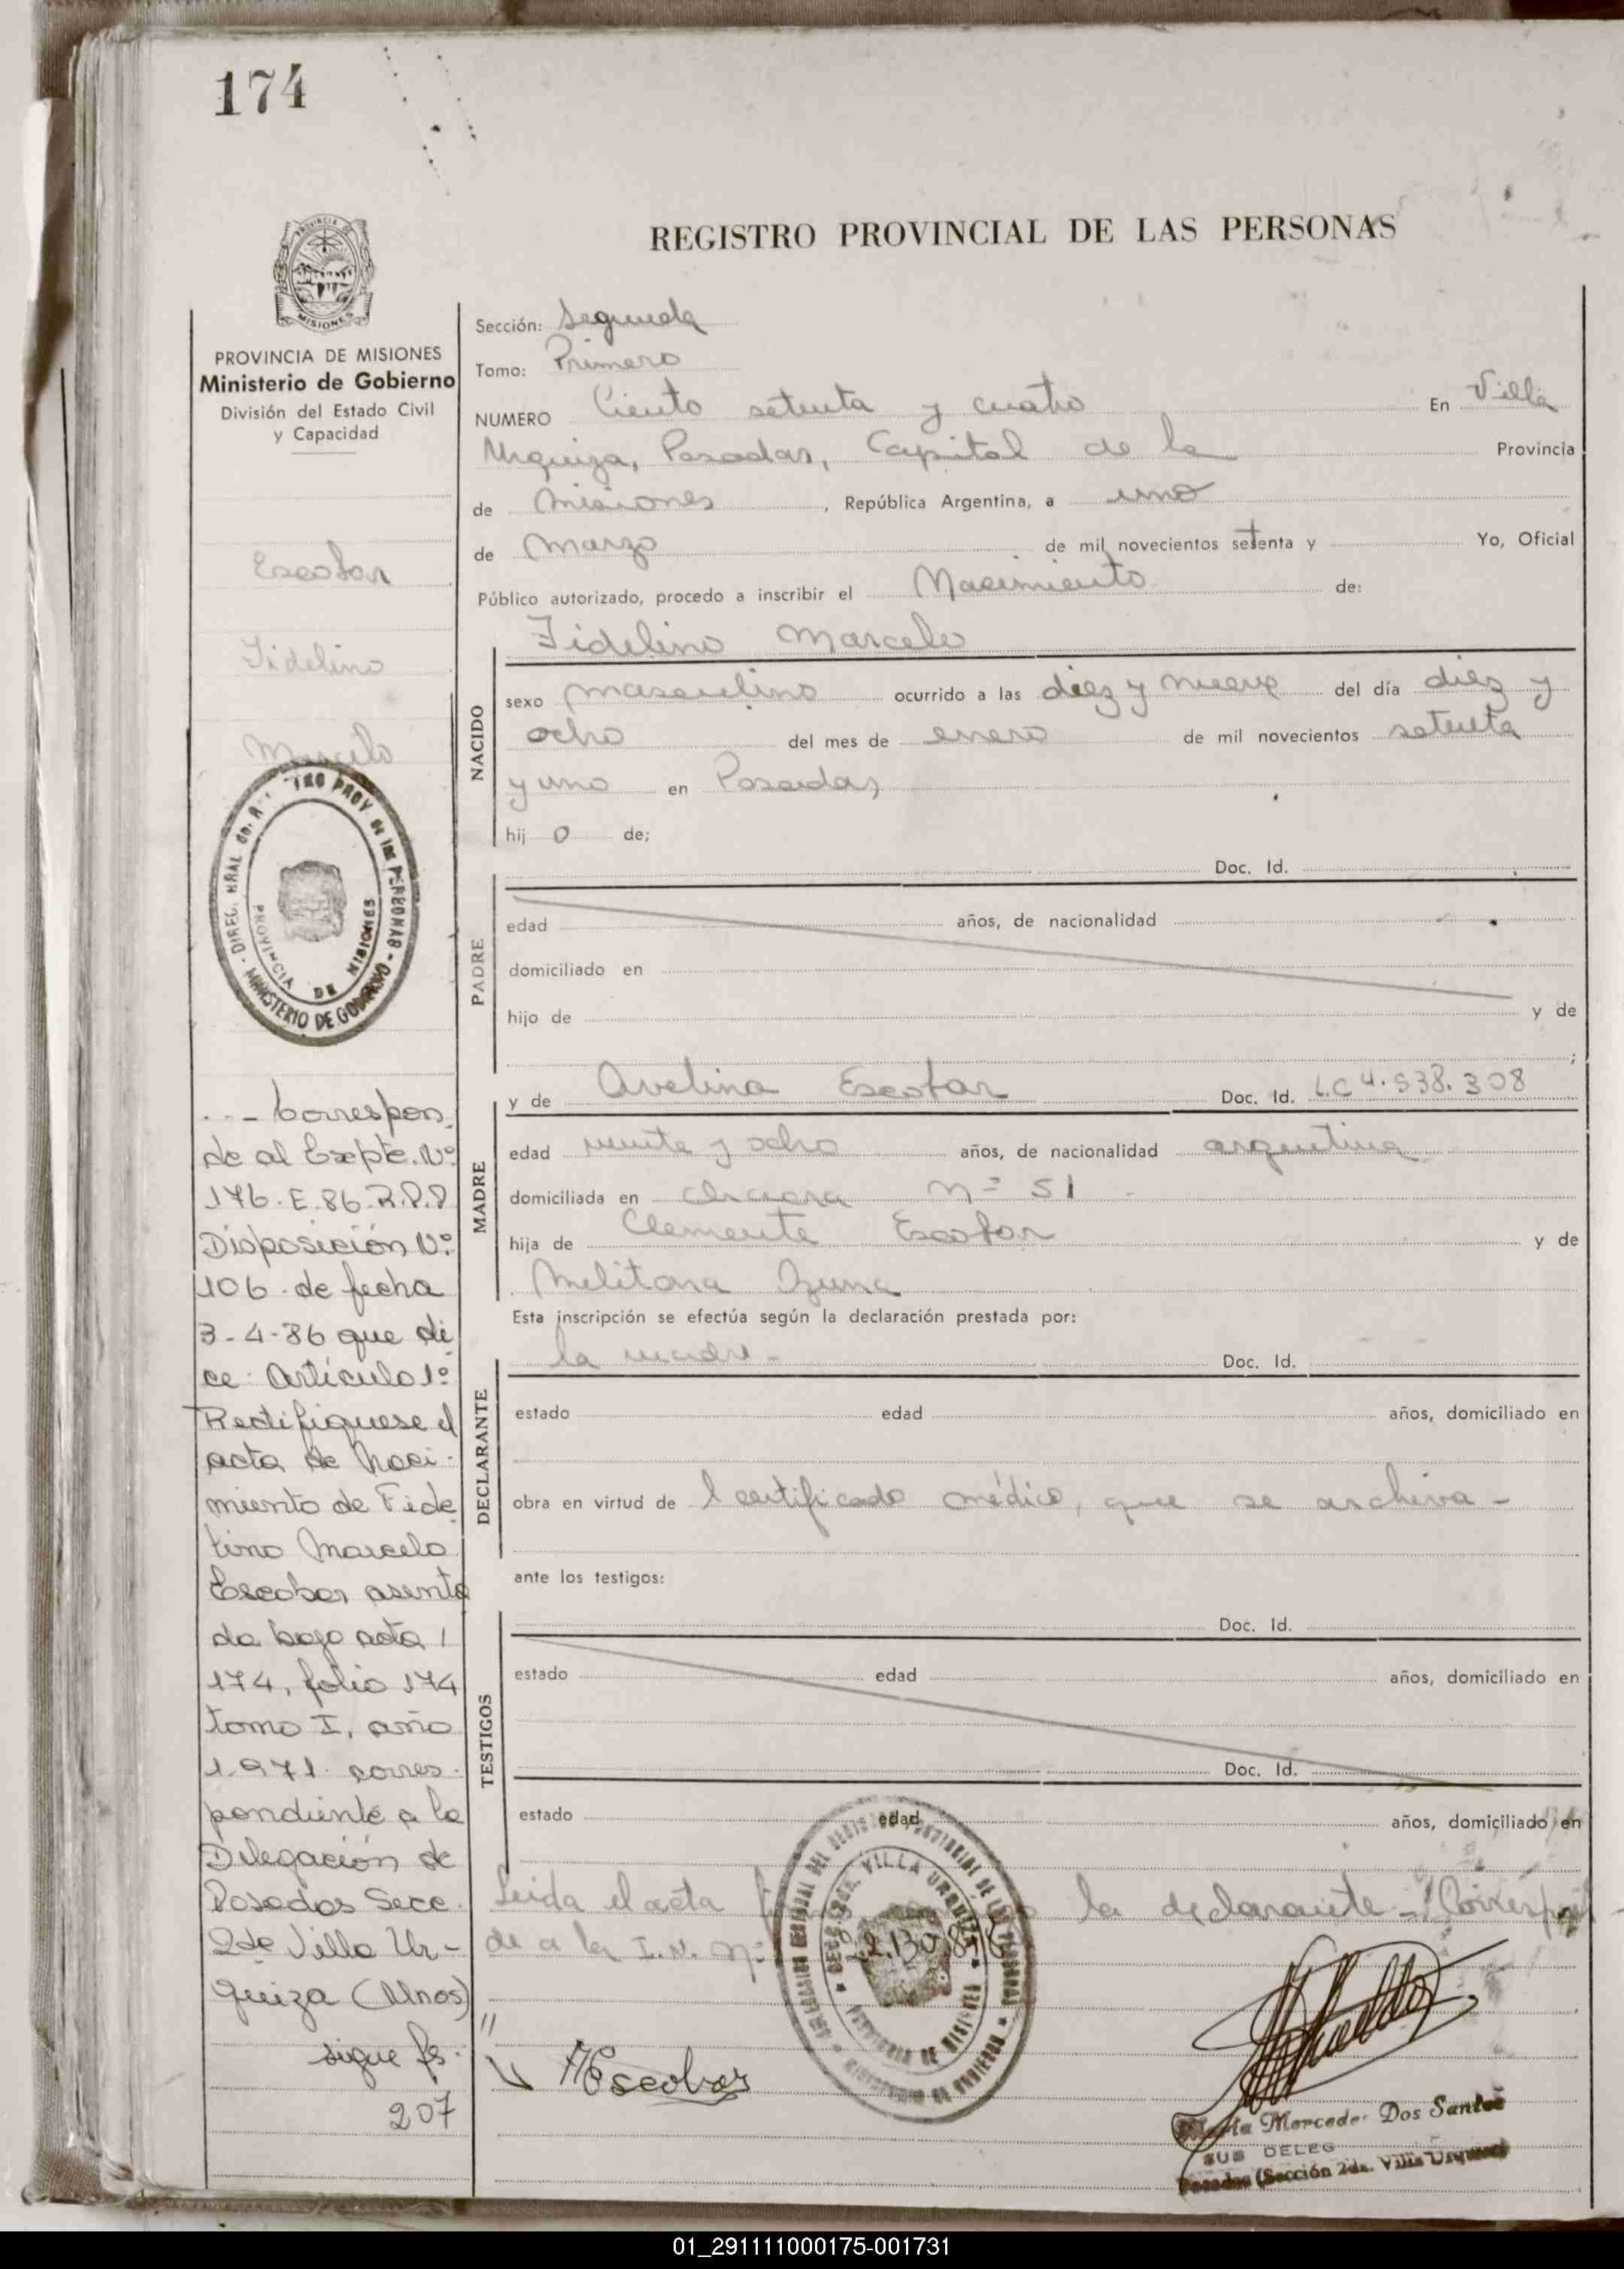 174
REGISTRO PROVINCIAL DE LAS PERSONAS
PROVINCIA
MISIONES
PROVINCIA DE MISIONES
Ministerio de Gobierno
División del Estado Civil
y Capacidad
Escobar
Fidelino
Marcelo
PROVINCIA DE MISIONES
MINISTERIO DE GOBIERNO
... - Correspon
de al Expte. Nº
176.E.86.R.P.P
Disposición Nº
106 de fecha
3-4-86 que di
ce: Artículo 1º
Rectifiquese el
acta de Naci-
miento de Fide
lino Marcelo
Escobar asenta
da bajo acta
174, folio 174
tomo I, año
1.971 corres-
pondiente a la
Delegación de
Posadas Secc.
2da Villa Ur-
quiza (Mnes)
sigue fs.
207
Sección: Segunda
Tomo: Primero
NUMERO Ciento setenta y cuatro En Villa
Urquiza, Posadas, Capital de la Provincia
de Misiones, República Argentina, a uno
de Marzo de mil novecientos setenta y Yo, Oficial
Público autorizado, procedo a inscribir el Nacimiento de:
Fidelino Marcelo
NACIDO
sexo masculino ocurrido a las diez y nueve del día diez y
ocho del mes de enero de mil novecientos setenta
y uno en Posadas,
hijo de;
Doc. Id.
PADRE
edad años, de nacionalidad
domiciliado en
hijo de y de
;
y de Avelina Escobar Doc. Id. L.C 4.538.308
MADRE
edad veinte y ocho años, de nacionalidad argentina
domiciliada en chacra Nº 51
hija de Clemente Escobar y de
Melitona Ozuna
Esta inscripción se efectúa según la declaración prestada por:
la madre - Doc. Id.
DECLARANTE
estado edad años, domiciliado en
obra en virtud de l certificado médico, que se archiva -
ante los testigos:
Doc. Id.
TESTIGOS
estado edad años, domiciliado en
Doc. Id.
estado edad años, domiciliado en
Leida el acta la declarante - Correspon
de a la I.N. Nº
VILLA URQUIZA
PROVINCIA DE MISIONES
MINISTERIO DE GOBIERNO
A Escobar
María Mercedes Dos Santos
SUB DELEG
Posadas (Sección 2da. Villa Urquiza)
01_291111000175-001731